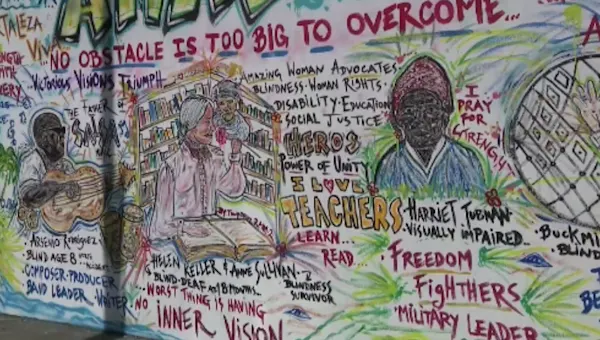 NO OBSTACLE IS TOO BIG TO OVERCOME...
VICTORIOUS VISIONS TRIUMPH
THE FATHER OF
SALSA
ARSENIO RODRIGUEZ
BLIND AGE 8
COMPOSER-PRODUCER
BAND LEADER - WRITER
AMAZING WOMAN ADVOCATES
BLINDNESS-WOMAN RIGHTS
DISABILITY-EDUCATION
SOCIAL JUSTICE
HEROS
POWER OF UNITY
I LOVE
TEACHERS
LEARN...
READ...
HELEN KELLER & ANNE SULLIVAN
BLIND-DEAF
BLINDNESS
SURVIVOR
WORST THING IS HAVING
NO INNER VISION
I
PRAY
FOR
STRENGHT
HARRIET TUBMAN
VISUALLY IMPAIRED...
FREEDOM
FIGHTHERS
MILITARY LEADER